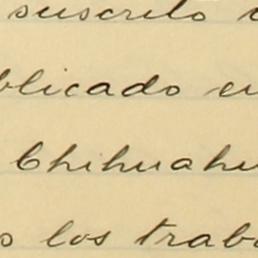 suscrito
blicado en
Chihuahu
los traba